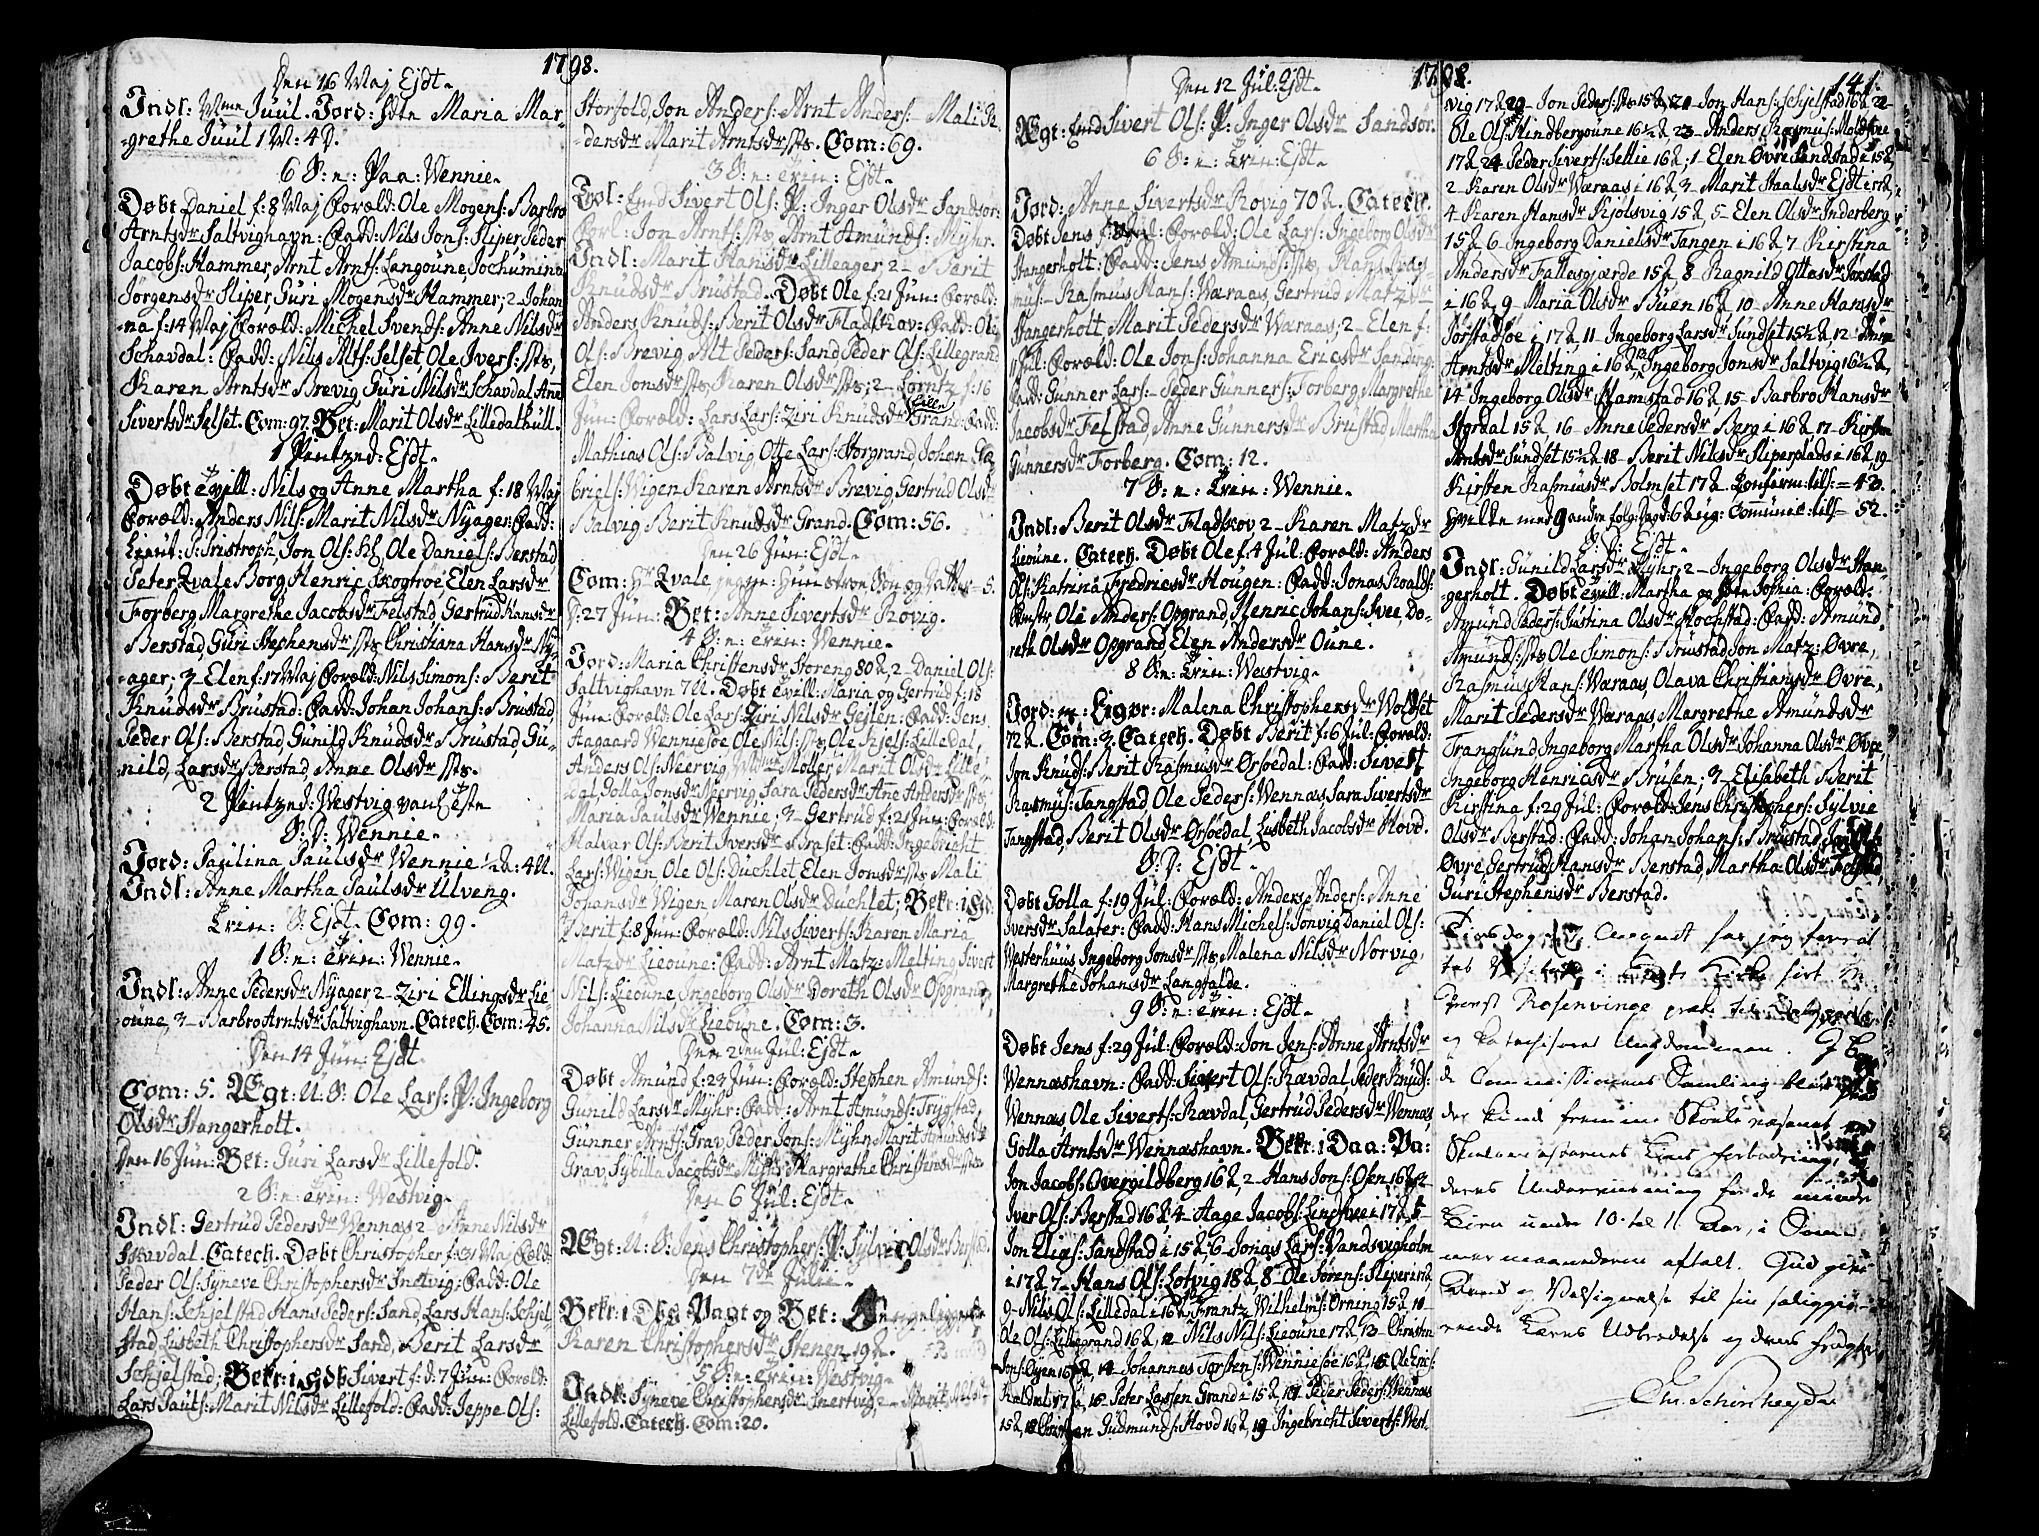 1798.
Den 16 Maj Ejdt.
Indl: Mme Juul. Jord: Maria Mar-
grethe Juul 1 M: 4 D.
6 S: n: Paa: Wennie.
Døbt Daniel f: 8 Maj Foræld: Ole Mogens: Barbro
Arntsdr Saltvighavn: Fadd: Nils Jons: Sliper Peder
Jacobs: Hammer, Arnt Arnts: Langoune Jochumina
Jørgensdr Sliper, Guri Mogensdr Hammer; 2 Johan-
na f: 14 Maj Foræld: Michel Svends: Anne Nilsdr
Schavdal: Fadd: Nils Alfs: Selset, Ole Ivers: sts,
Karen Arntsdr Brevig Guri Nilsdr Schavdal Anne
Sivertsdr Selset. Com: 97. Bet: Marit Olsdr Lilledalhull.
1 Pintzed: Ejdt.
Døbt tvill: Nils og Anne Martha f: 18 Maj
Foræld: Anders Nils: Marit Nilsdr Nyager: Fadd:
Lieut: Kristroph, Jon Ols: Ole Daniels: Berstad
Peter Qvale Borg Henric Skogtroe, Elen Larsdr
Forberg Margrethe Jacobsdr Felstad, Gertrud Hansdr
Berstad, Guri Stephensdr sts Christiana Hansdr Ny-
ager; 3 Elen f: 17 Maj Foræld: Nils Simons: Berit
Knudsdr Brustad: Fadd: Johan Johans: Brustad,
Peder Ols: Berstad Gunild Knudsdr Brustad, Gu-
nild Larsdr Berstad, Anne Olsdr sts.
2 Pintzed: Westvig
S: D: Wennie.
Jord: Paulina Paulsdr Wennie
Indl: Anne Martha Paulsdr Ulveng.
Trin: S: Ejdt. Com: 99.
1 S: n: Trin: Wennie.
Indl: Anne Pedersdr Nyager 2 Ziri Ellingsdr Lie
oune 3 Barbro Arntsdr Saltvighavn. Catech. Com: 45.
Den 14 Jun: Ejdt.
Com: 5. Ægt: U: S: Ole Lars: P: Ingeborg
Olsdr Stangerholt.
Den 16 Jun: Bet: Guri Larsdr Lillefold.
2 S: n: Trin: Westvig.
Indl: Gertrud Pedersdr Wennæs 2 Anne Nilsdr
Skavdal. Catech. Døbt Christopher f: 31 Maj Foræld:
Peder Ols: Syneve Christophersdr Snetvig: Fadd: Ole
Hans: Schjelstad Hans Peders: Sand, Lars Hans: Schjel
stad Lisbeth Christophersdr Sand, Berit Larsdr
Schjelstad; Bekr: i Hdb Sivert f: d: 7 Jun: Foræld:
Lars Pauls: Marit Nilsdr Lillefold: Fadd: Jeppe Ols:
Storfold, Jon Anders: Arnt Anders: Mali Pe-
dersdr Marit Arntsdr sts. Com: 69.
3 S: n: Trin: Ejdt.
Trol: Emd Sivert Ols: P: Inger Olsdr Sandsør:
Forl: Jon Arnts: sts, Arnt Amunds: Myhr.
Indl: Marit Hansdr Lilleager, 2 Berit
Knudsdr Brustad. Døbt Ole f: 21 Jun: Foræld:
Anders Knuds: Berit Olsdr Fladskov: Fadd: Ole
Ols: Brevig Alt Peders: Sand Peder Ols: Lillegrand
Elen Jonsdr sts, Karen Olsdr sts; 2 Lorntz f: 16
Jun: Foræld: Lars Lars: Ziri Knudsdr Lille Grand: Fadd:
Mathias Ols: Salvig, Otte Lars: Storgrand Johan Ga-
briels: Wigen Karen Arntsdr Brevig Gertrud Olsdr
Salvig Berit Knudsdr Grand. Com: 56.
Den 26 Jun: Ejdt.
Com: Hr Qvale Søn og Datter 5.
D: 27 Jun: Bet: Anne Sivertsdr Rovig.
4 S: n: Trin: Wennie.
Jord: Maria Christensdr Storeng 80 2, 2 Daniel Ols:
Saltvighavn 7 U. Døbt tvill: Maria og Gertrud f: 18
Jun: Foræld: Ole Lars: Ziri Nilsdr Gejlen: Fadd: Jens
Aagaard Wenniesøe Ole Nils: sts, Ole Kjels: Lilledal,
Anders Ols: Neervig, Møller Marit Olsdr Lille
dal, Golla Jonsdr Neervig Sara Pedersdr Ane Andersdr sts,
Maria Paulsdr Wennie; 3 Gertrud f: 21 Jun: Foræld:
Halvar Ols: Berit Iversdr Braset: Fadd: Ingebricht
Lars: Wigen Ole Ols: Duchlet Elen Jonsdr sts Mali
Johansdr Wigen Maren Olsdr Duchlet; Bekr: i Hd:
Berit f: 8 Jun: Foræld: Nils Siverts: Karen Maria
Matzdr Lieoune: Fadd: Arnt Matz: Melting Sivert
Nils: Lieoune Ingeborg Olsdr Doreth Olsdr Opgrand,
Johanna Nilsdr Lieoune. Com: 3.
Den 2den Jul: Ejdt.
Døbt Amund f: 23 Jun: Foræld: Stephen Amunds:
Gunild Larsdr Myhr: Fadd: Arnt Amunds: Trygstad,
Gunner Arnts: Grav, Peder Jons: Myhr Marit Amundsdr
Grav Sybilla Jacobsdr Myhr Margrethe Christensdr sts
Den 6 Jul: Ejdt.
Ægt: U: S: Jens Christophers: P: Sylvie Olsdr Berstad.
Den 7de Julii.
Bekr: i Dbs Pagt og Bet:
Karen Christophersdr Stenen 19 2.
5 S: n: Trin: Westvig.
Indl: Syneve Christophersdr Snertvig, 2 Marit Nilsdr
Lillefold. Catech. Com: 20.
1798.
141.
Den 12 Jul: Ejdt.
Ægt: Emd Sivert Ols: P: Inger Olsdr Sandsør.
6 S: n: Trin: Ejdt.
Jord: Anne Sivertsdr Rovig 70 2. Catech.
Døbt Jens Foræld: Ole Lars: Ingeborg Olsdr
Stangerholt: Fadd: Jens Amunds: sts, Hans Ras-
mus: Rasmus Hans: Wæraas, Gertrud Matzdr
Stangerholt Marit Pedersdr Wæraas; 2 Elen f:
Jul: Foræld: Ole Jons: Johanna Ericsdr Sanding:
Fadd: Gunner Lars: Peder Gunners: Forberg Margrethe
Jacobsdr Felstad, Anne Gunnersdr Brustad Martha
Gunnersdr Forberg. Com: 12.
7 S: n: Trin: Wennie.
Indl: Berit Olsdr Fladskov 2 Karen Matzdr
Lieoune. Catech. Døbt Ole f: 4 Jul: Foræld: Anders
Ols: Katrina Fredricsdr Hougen: Fadd: Jonas Roalds:
Ole Anders: Opgrand, Henric Johans: Svee Do-
reth Olsdr Opgrand Elen Andersdr Oune.
8 S: n: Trin: Westvig.
Jord: Malena Christophersdr Woldset
72 2. Com: 3. Catech. Døbt Berit f: 6 Jul: Foræld:
Jon Knuds: Berit Rasmusdr Orsøedal: Fadd: Sivert
Rasmus: Tangstad Ole Peders: Wennæs Sara Sivertsdr
Tangstad, Berit Olsdr Orsøedal, Lisbeth Jacobsdr Hovd.
S: D: Ejdt.
Døbt Golla f: 19 Jul: Foræld: Anders Anders: Anne
Iversdr Salater: Fadd: Hans Michels: Jonvig Daniel Ols:
Westerhuus Ingeborg Jonsdr sts, Malena Nilsdr Norvig,
Margrethe Johansdr Langfalde.
9 S: n: Trin: Ejdt.
Døbt Jens f: 29 Jul: Foræld: Jon Jens: Anne Arntsdr
Wennæshavn: Fadd: Sivert Ols: Rævdal Peder Knuds:
Wennæs, Ole Siverts: Rævdal, Gertrud Pedersdr Wennæs,
Golla Arntsdr Wennæshavn. Bekr: i Daa: Pa:
Jon Jacobs: Overgildberg 16 2, 2 Hans Jons: Osen 16 2, 3
Iver Ols: Berstad 16 2 4 Aage Jacobs: Lindsvee i 17 2, 5
Jon Elias: Sandstad i 15 2, 6 Jonas Lars: Vandsvigholm
i 17 2 7 Hans Ols: Lotvig 18 2, 8 Ole Sørens: Sliper i 17 2
9 Nils Ols: Lilledal i 16 2, Frantz Wilhelms: Orning 15 2 10
Ole Ols: Lillegrand 16 2, 12 Nils Nils: Lieoune 17 2 13 Christen
Jons: Oyen 16 2, 14 Johannes Torstens: Wenniesøe 16 2, 15
16 Peter Larsen Grand i 15 2 17 Peder Peders: Wennæs
15 2, 18 Christen Gudmunds: Hovd 16 2, 19 Ingebricht Siverts: West-
vig 17 2 20 Jon Peders: sts 15 2, 21 Jon Hans: Schjelstad 16 2 22
Ole Ols: Rindbergoune 16 ½ 2 23 Anders Rasmus: Moldsvee
17 2 24 Peder Siverts: Sellie 16 2; 1 Elen Øvre Sandstad i 15 2
2 Karen Olsdr Wæraas i 16 2, 3 Marit Staalsdr Ejdt i 17 2,
4 Karen Hansdr Kjolsvig 15 2, 5 Elen Olsdr Inderberg
15 2 6 Ingeborg Danielsdr Tangen i 16 2 7 Kirstina
Andersdr Fallasgjærde 15 2 8 Ragnild Ottesdr
i 16 2, 9 Maria Olsdr Buen 16 2, 10 Anne Hansdr
Jørstadsøe i 17 2, 11 Ingeborg Larsdr Sundset 15½ 2, 12 Anne
Arntsdr Melting i 16 2, 13 Ingeborg Jonsdr Saltvig 16½ 2,
14 Ingeborg Olsdr Hamstad 16 2, 15 Barbro Hansdr
Stordal 15 2 16 Anne Pedersdr Berg i 16 2 17 Kirsten
Arntsdr Sundset 15½ 2 18 Berit Nilsdr Sliperplads i 16 2, 19
Kirsten Rasmusdr Bolmset 17 2. Confirm: tils: 43.
Hvilke med 9 andre Communic: tils 52.
S: D: Ejdt.
Indl: Gunild Larsdr Myhr, 2 Ingeborg Olsdr Stan-
gerholt. Døbt tvill: Martha og Sophia: Foræld:
Amund Peders: Justina Olsdr Hochstad: Fadd: Amund
Amunds: sts Ole Simons: Brustad, Jon Matz: Øvre,
Rasmus Hans: Wæraas, Olava Christiansdr Øvre,
Marit Pedersdr Wæraas, Margrethe Amundsdr
Trangsund Ingeborg Martha Olsdr Johanna Olsdr Øvre,
Ingeborg Henricsdr Brusen; 3 Elisabeth Berit
Kirstina f: 29 Jul: Foræld: Jens Christophers: Sylvie
Olsdr Berstad: Fadd: Johan Johans: Brustad,
Øvre Gertrud Hansdr Berstad, Martha Olsdr Felstad,
Guri Stephensdr Berstad.
Tirsdag August har jeg forret
tet Visitatz i Kirke hvor
Provst Rosenvinge præk:
og Katechiserede Ungdommen. I
Commissionens Samling blev
Skolevæsenet
Skolens forbedring,
deres Underviisning for de mindre
Børn under 10 til 11 Aar, i Som
mermaanederne aftalt. Gud give
og Velsignelse til sin saliggiø
rende Læres Udbredelse og dens Frugter.